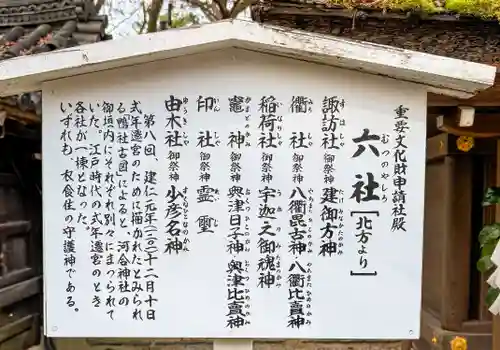 重要文化財申請社殿
六社[北方より]
むつのやしろ
諏訪社 御祭神 建御方神
すはしゃ たけみなかたのかみ
衢社 御祭神 八衢毘古神・八衢比賣神
みちしゃ やちまたひこのかみ やちまたひめのかみ
稲荷社 御祭神 宇迦之御魂神
いなりしゃ うかのみたまのかみ
竈神 御祭神 奥津日子神・奥津比賣神
かまどのかみ おくつひこのかみ おくつひめのかみ
印社 御祭神 霊璽
いんしゃ
由木社 御祭神 少彦名神
ゆうきしゃ すくなひこなのかみ
第八回、建仁元年(一二〇一)十二月十日
式年遷宮のために描かれたとみられ
る「鴨社古図」によると、河合神社の
御垣内にそれぞれ別々にまつられて
いた。江戸時代の式年遷宮のとき
各社が一棟となった。
いずれも、衣食住の守護神である。